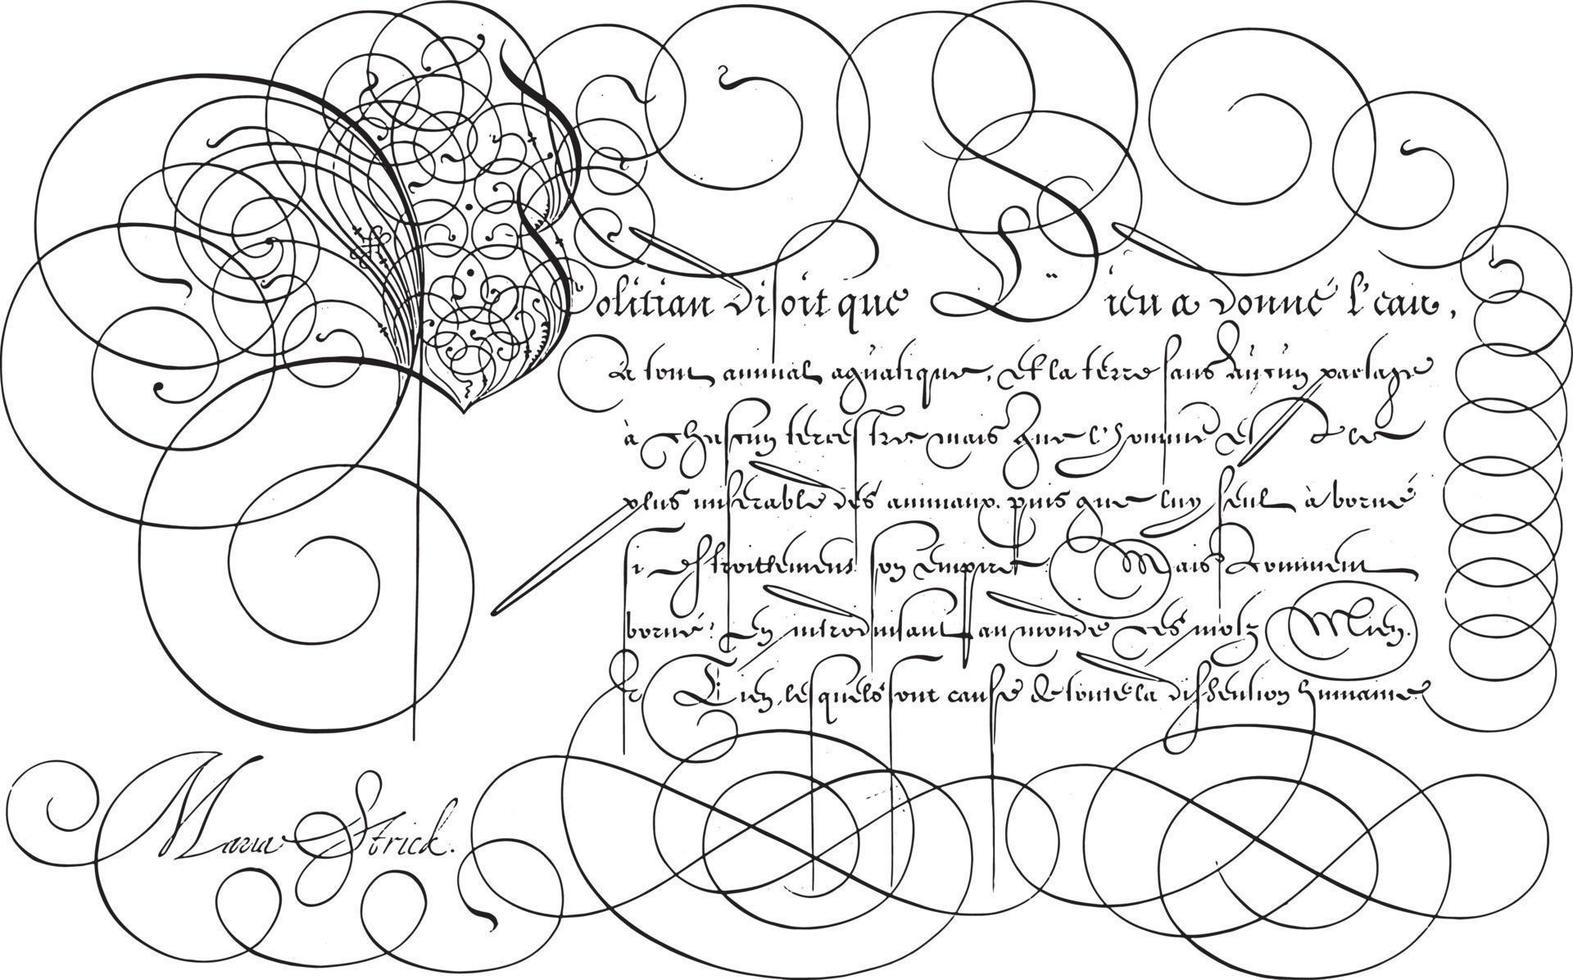 Politian disoit que Dieu a donné l'eau,
à tout animal aquatique, et la terre sans aucun partage
à chascun terrestre mais que l'homme est le
plus miserable des animaux. puis que luy seul à borné
si estroittement son empire. Mais comment
borné? En introduisant au monde ces motz Mien.
et Tien, lesquels sont cause de toute la dissention humaine.
Maria Strick.